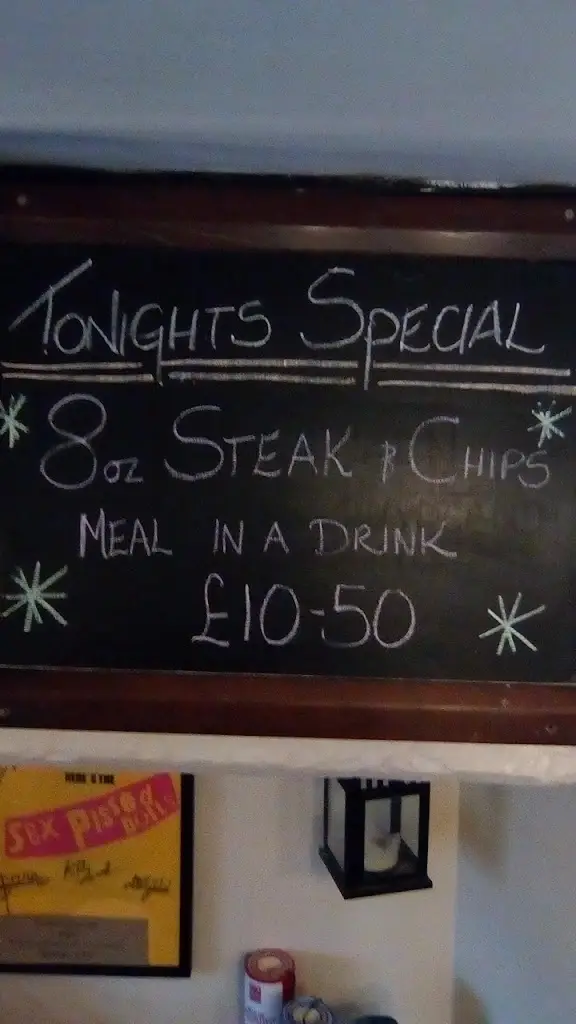 TONIGHTS SPECIAL
8oz STEAK & CHIPS
MEAL IN A DRINK
£10-50
HERE'S THE
SEX PISSED